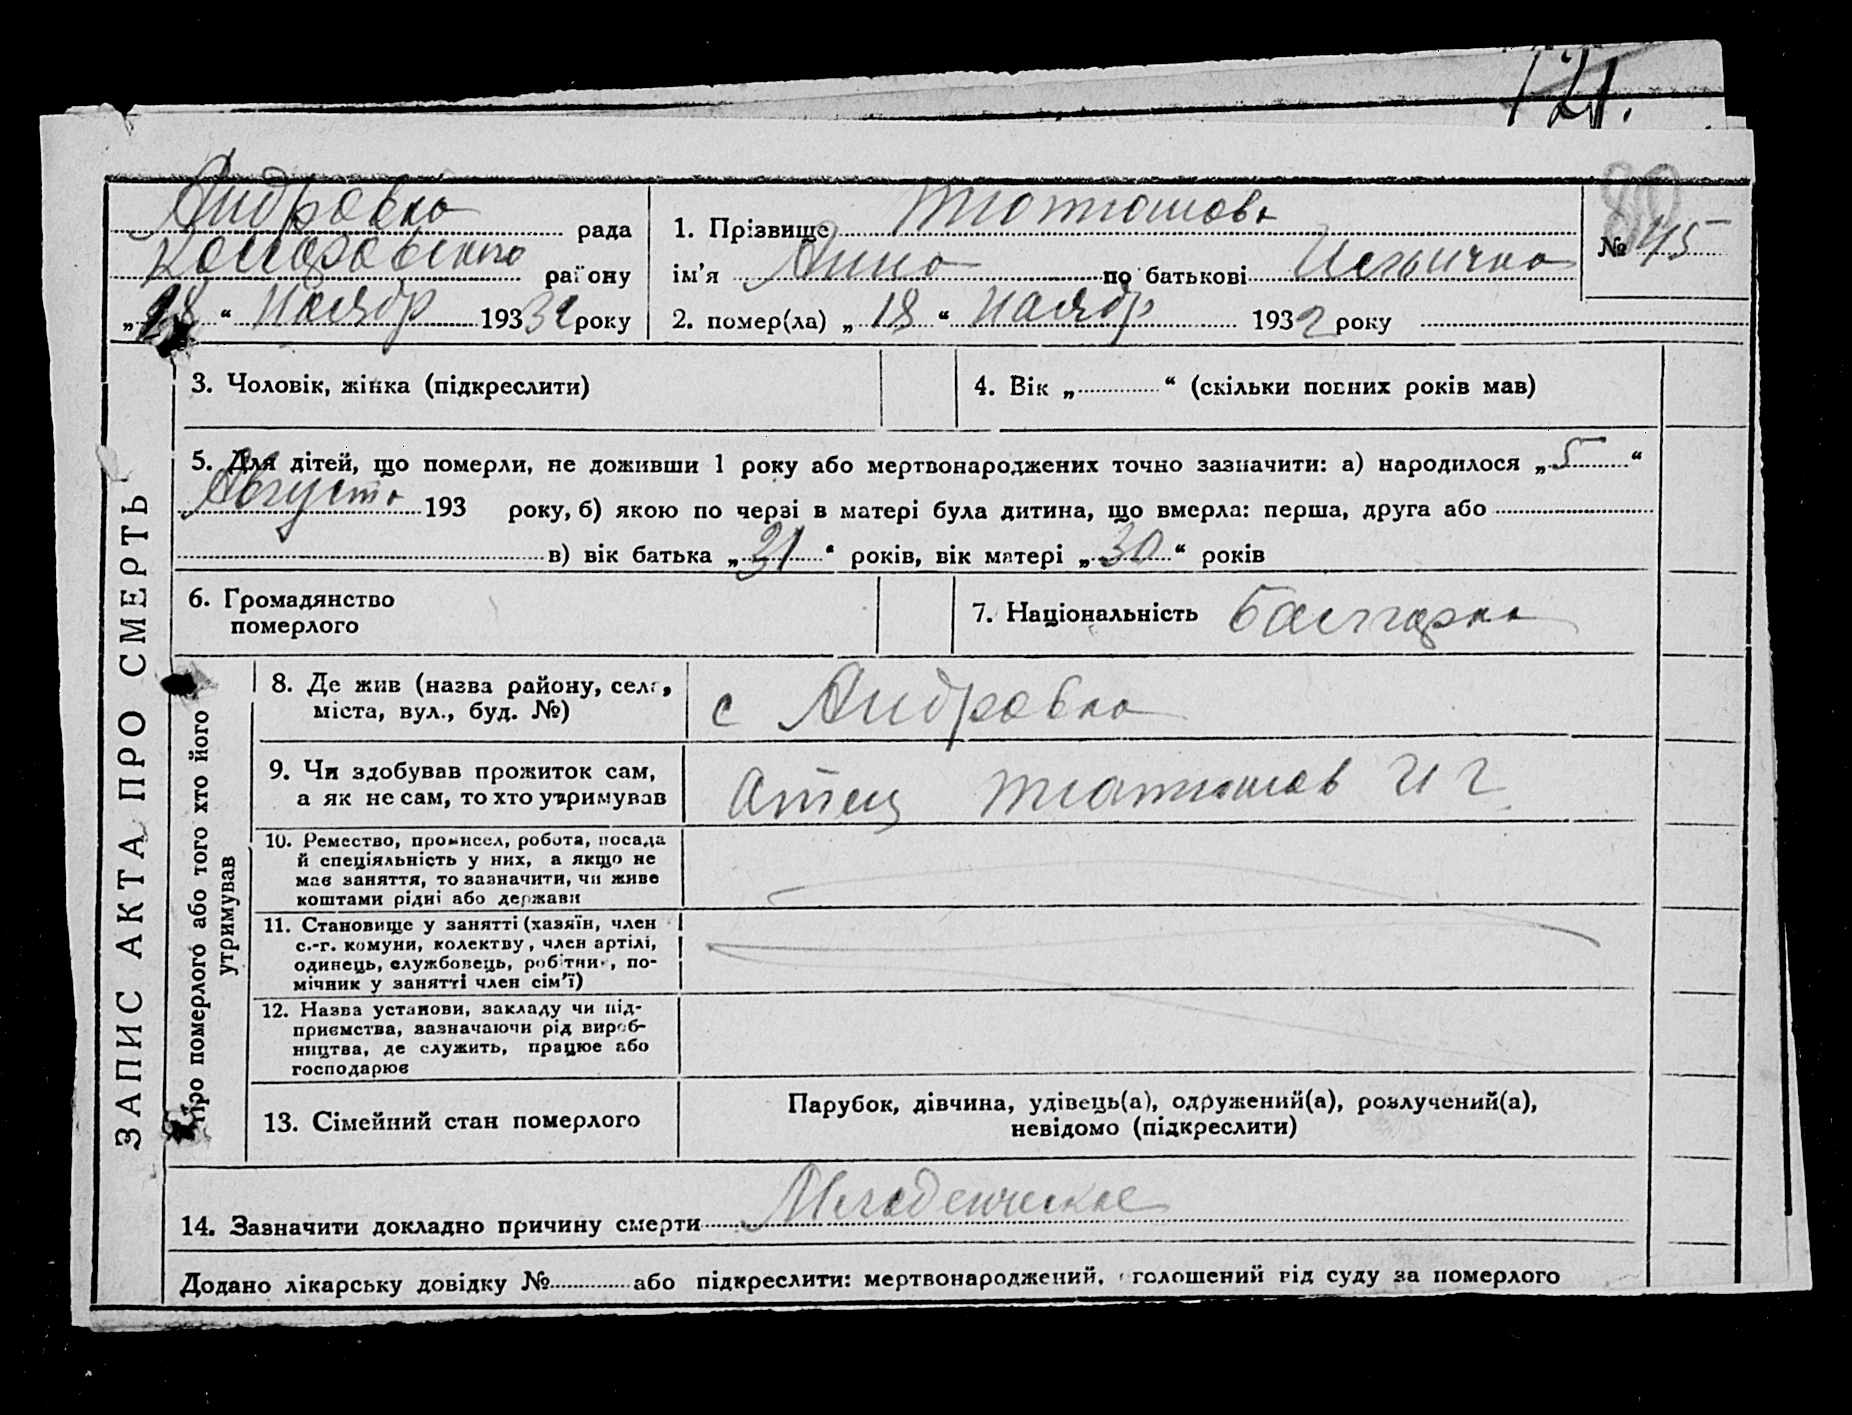 121.
Андровка рада
Коларовского району
„28“ Ноябр 1932 року
1. Прізвище Тютюшова
ім'я Анна по батькові Ильична
2. помер(ла) „18“ Ноябр 1932 року
№ 45
3. Чоловік, жінка (підкреслити)
4. Вік „ “ (скільки повних років мав)
5. Для дітей, що померли, не доживши 1 року або мертвонароджених точно зазначити: а) народилося „5“
Августа 193 року, б) якою по черзі в матері була дитина, що вмерла: перша, друга або
в) вік батька „31“ років, вік матері „30“ років
6. Громадянство
померлого
7. Національність Балгарка
ЗАПИС АКТА ПРО СМЕРТЬ
Про померлого або того хто його
утримував
8. Де жив (назва району, села,
міста, вул., буд. №)
с Андровка
9. Чи здобував прожиток сам,
а як не сам, то хто утримував
Отец Тютюшов И Г
10. Ремество, промисел, робота, посада
й спеціяльність у них, а якщо не
має заняття, то зазначити, чи живе
коштами рідні або держави
11. Становище у занятті (хазяїн, член
с.-г. комуни, колектву, член артілі,
одинець, службовець, робітник, по-
мічник у занятті член сім'ї)
12. Назва установи, закладу чи під-
приємства, зазначаючи рід вироб-
ництва, де служить, працює або
господарює
13. Сімейний стан померлого
Парубок, дівчина, удівець(а), одружений(а), розлучений(а),
невідомо (підкреслити)
14. Зазначити докладно причину смерти Младенческае
Додано лікарську довідку № або підкреслити: мертвонароджений, голошений від суду за померлого